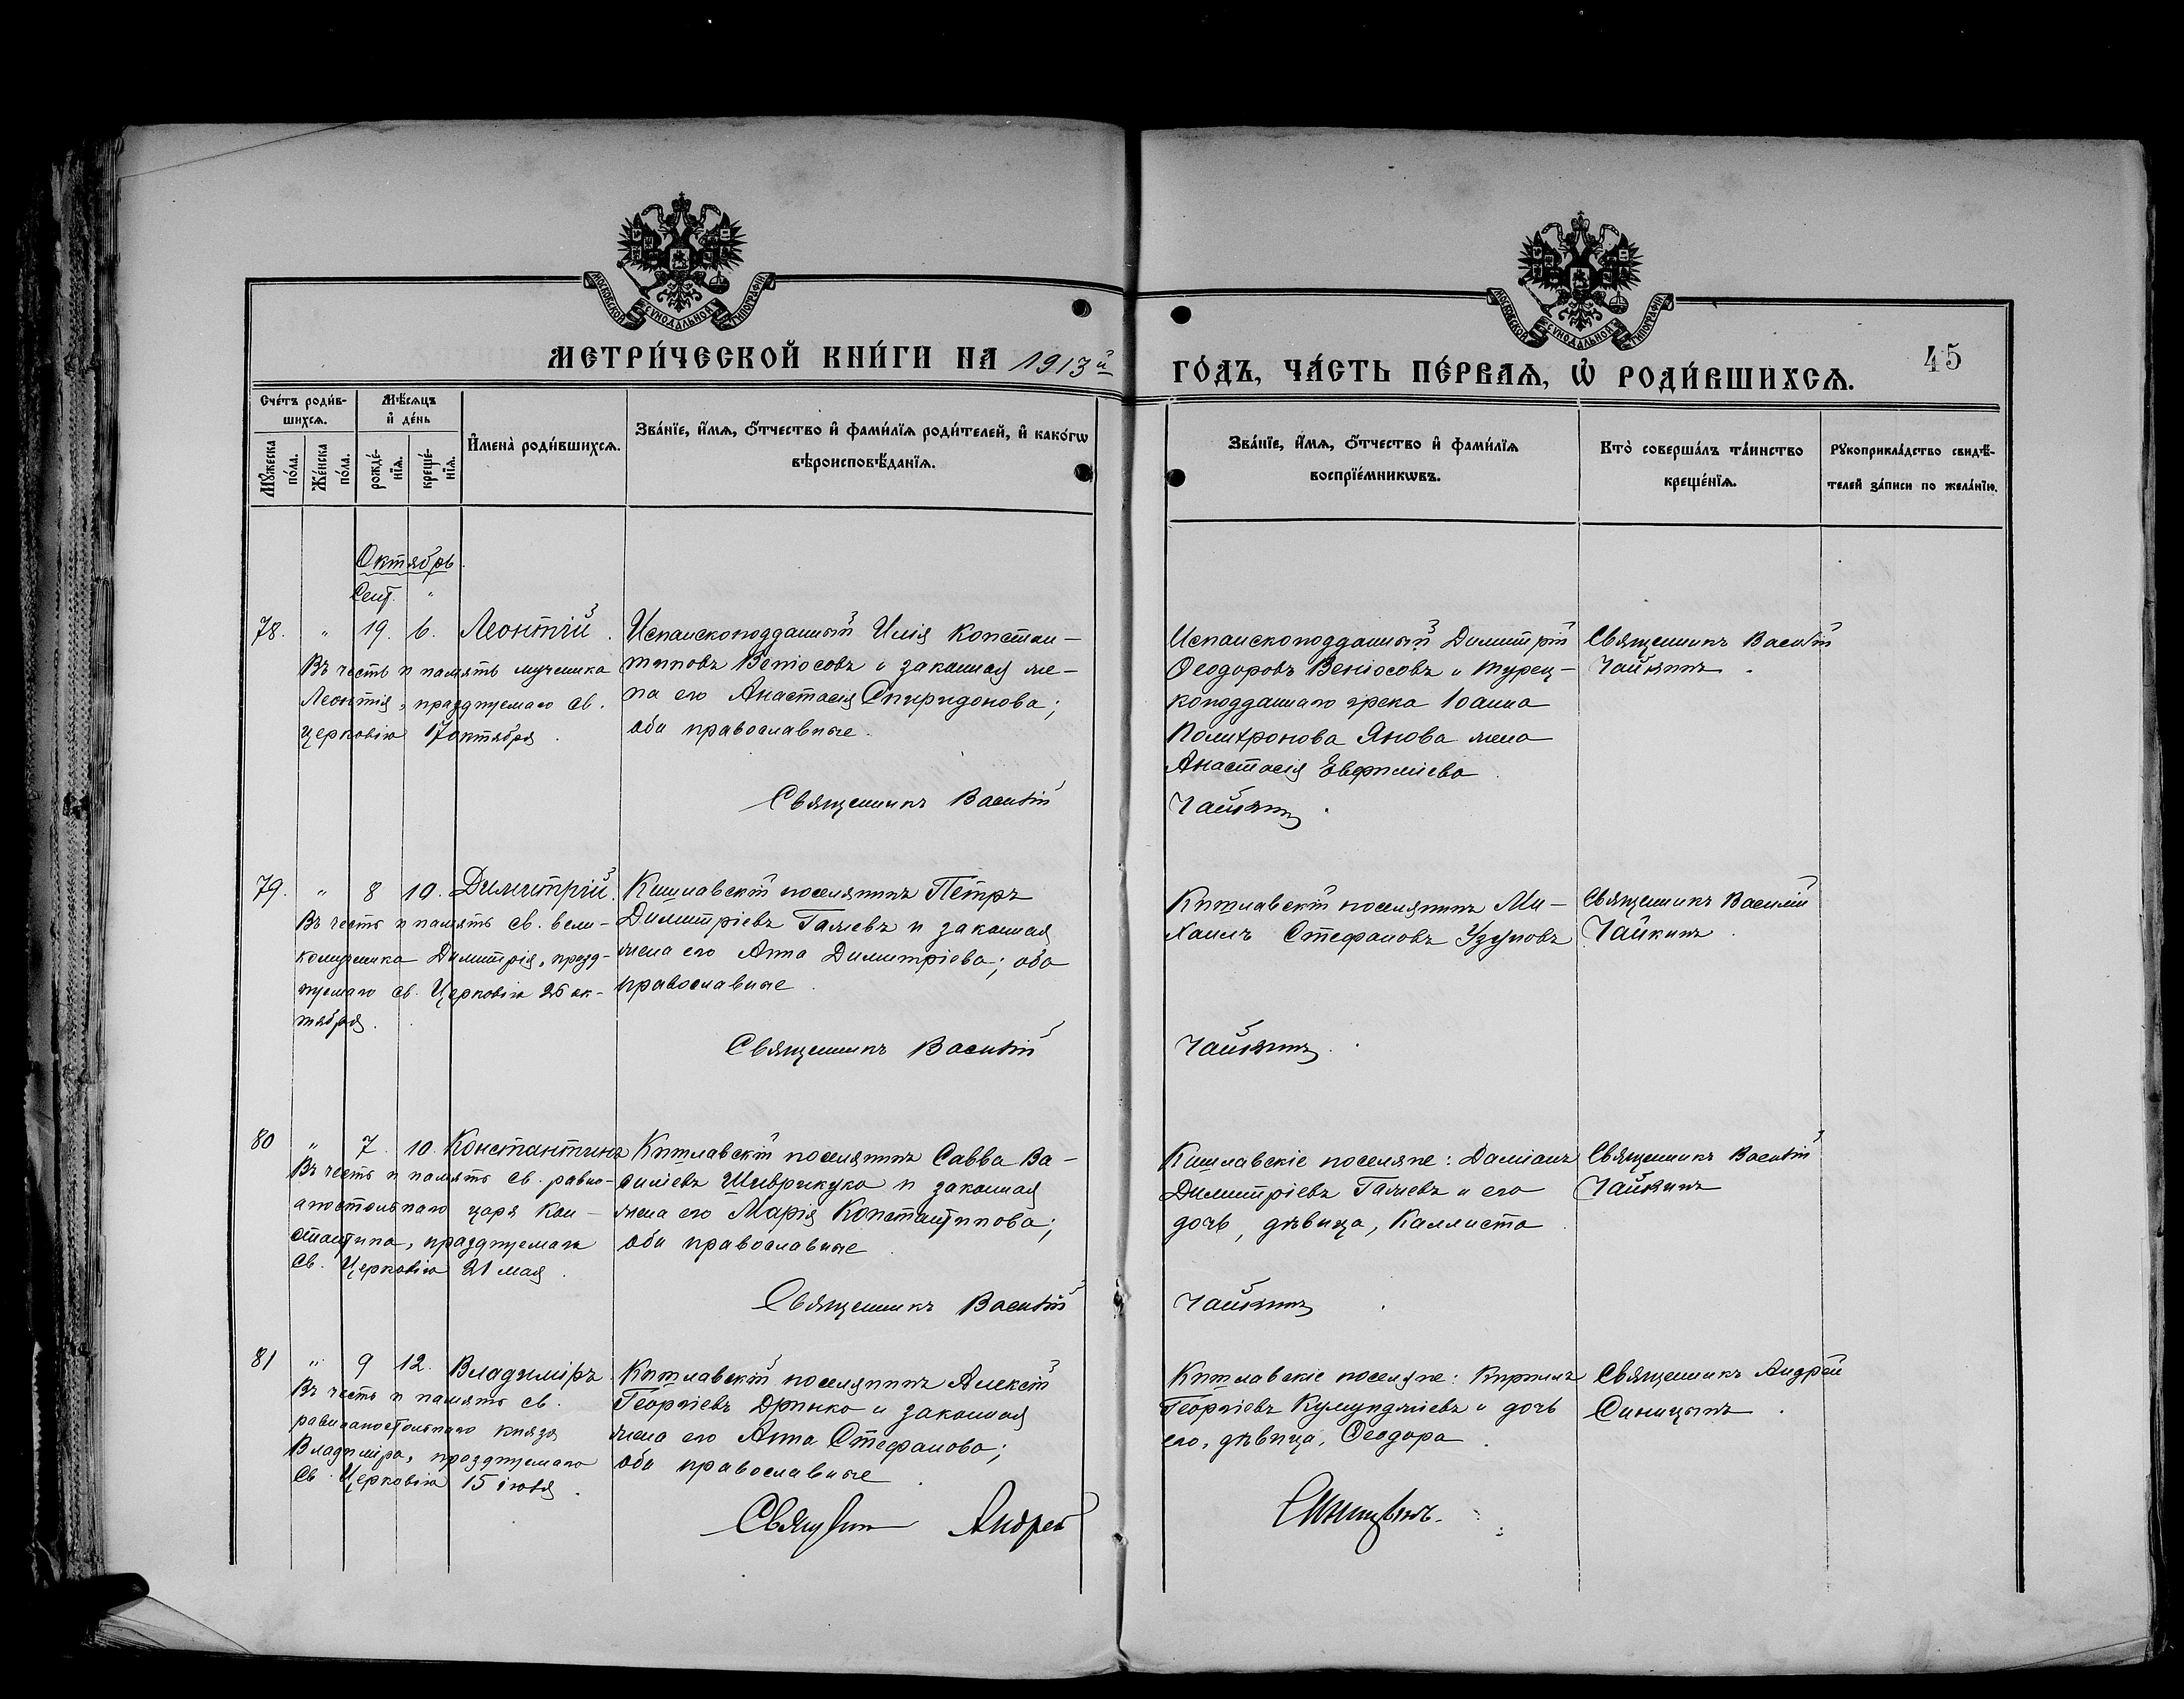 МОСКОВСКОЙ СУНОДАЛЬНОЙ ТИПОГРАФІИ
МОСКОВСКОЙ СУНОДАЛЬНОЙ ТИПОГРАФІИ
МЕТРИ́ЧЕСКОЙ КНИ́ГИ НА 1913й
ГО́ДЪ, ЧА́СТЬ ПЕ́РВАѦ, Ѡ҆ РОДИ́ВШИХСѦ.
45
Сче́тъ роди́в-
шихсѧ.
Мꙋ́жеска
по́ла.
Же́нска
по́ла.
Мѣ́сѧцъ
и҆ де́нь
рожде́-
нїѧ.
креще́-
нїѧ.
И҆мена̀ роди́вшихсѧ.
Зва́нїе, и҆́мѧ, ѻ҆́тчество и҆ фами́лїѧ роди́телей, и҆ како́гѡ
вѣроисповѣ́данїѧ.
Зва́нїе, и҆́мѧ, ѻ҆́тчество и҆ фами́лїѧ
воспрїе́мникѡвъ.
Кто̀ соверша́лъ та́инство
креще́нїѧ.
Рꙋкоприкла́дство свидѣ́-
телей за́писи по жела́нїю.
Октябрь
Сент. "
78. " 19. 6. Леонтій.
Въ честь и память мученика
Леонтія, празднуемаго св.
церковію 17 октября.
Испанскоподданный Илія Констан-
тиновъ Веніосовъ и законная же-
на его Анастасія Спиридонова;
оба православные.
Священникъ Василій
Испанскоподданный Димитрій
Ѳеодоровъ Веніосовъ и турец-
коподданнаго грека Іоанна
Полихронова Янова жена
Анастасія Евфиміева
Чайкинъ.
Священникъ Василій
Чайкинъ.
79. " 8 10. Димитрій.
Въ честь и память св. вели-
комученика Димитрія, празд-
нуемаго св. Церковію 26 ок-
тября.
Кишлавскій поселянинъ Петръ
Димитріевъ Галіевъ и законная
жена его Анна Димитріева; оба
православные.
Священникъ Василій
Кишлавскій поселянинъ Ми-
хаилъ Стефановъ Узуновъ
Чайкинъ.
Священникъ Василій
Чайкинъ.
80 " 7. 10. Константинъ
Въ честь и память св. равно-
апостольнаго царя Кон-
стантина, празднуемаго
св. Церковію 21 мая.
Кишлавскій поселянинъ Савва Ва-
силіевъ Шиврикуко и законная
жена его Марія Константинова;
оба православные.
Священникъ Василій
Кишлавскіе поселяне: Даміанъ
Димитріевъ Галіевъ и его
дочь, дѣвица, Каллиста.
Чайкинъ.
Священникъ Василій
Чайкинъ
81 " 9 12. Владиміръ.
Въ честь и память св.
равноапостольнаго князя
Владиміра, празднуемаго
св. Церковію 15 іюля.
Кишлавскій поселянинъ Алексій
Георгіевъ Дринко и законная
жена его Анна Стефанова;
оба православные.
Священникъ Андрей
Кишлавскіе поселяне: Кириллъ
Георгіевъ Куюнджіевъ и дочь
его, дѣвица, Ѳеодора.
Синицынъ.
Священникъ Андрей
Синицынъ.